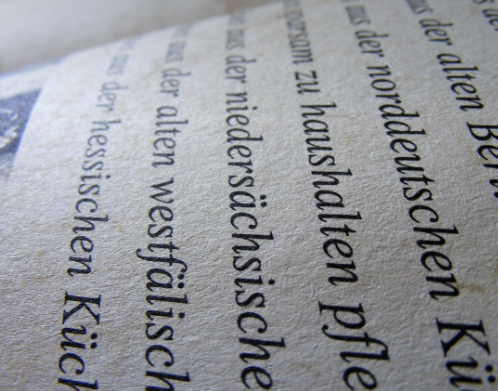 aus der alten Berl
aus der norddeutschen Kü
sparsam zu haushalten pfle
aus der niedersächsische
aus der alten westfälisch
aus der hessischen Küch